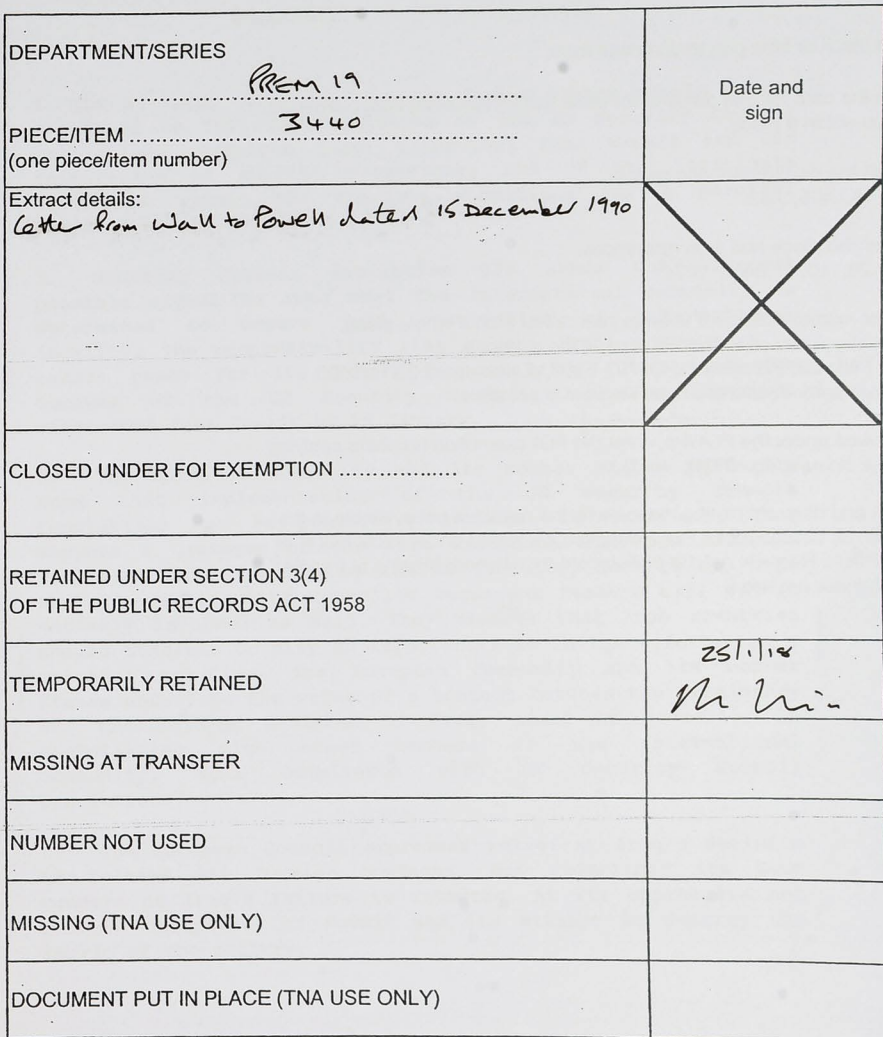 DEPARTMENT/SERIES
PREM 19
Date and
sign
PIECE/ITEM 3440
(one piece/item number)
Extract details:
Letter from Wall to Powell dated 15 December 1990
CLOSED UNDER FOI EXEMPTION ....................
RETAINED UNDER SECTION 3(4)
OF THE PUBLIC RECORDS ACT 1958
TEMPORARILY RETAINED
25/1/18
MISSING AT TRANSFER
NUMBER NOT USED
MISSING (TNA USE ONLY)
DOCUMENT PUT IN PLACE (TNA USE ONLY)